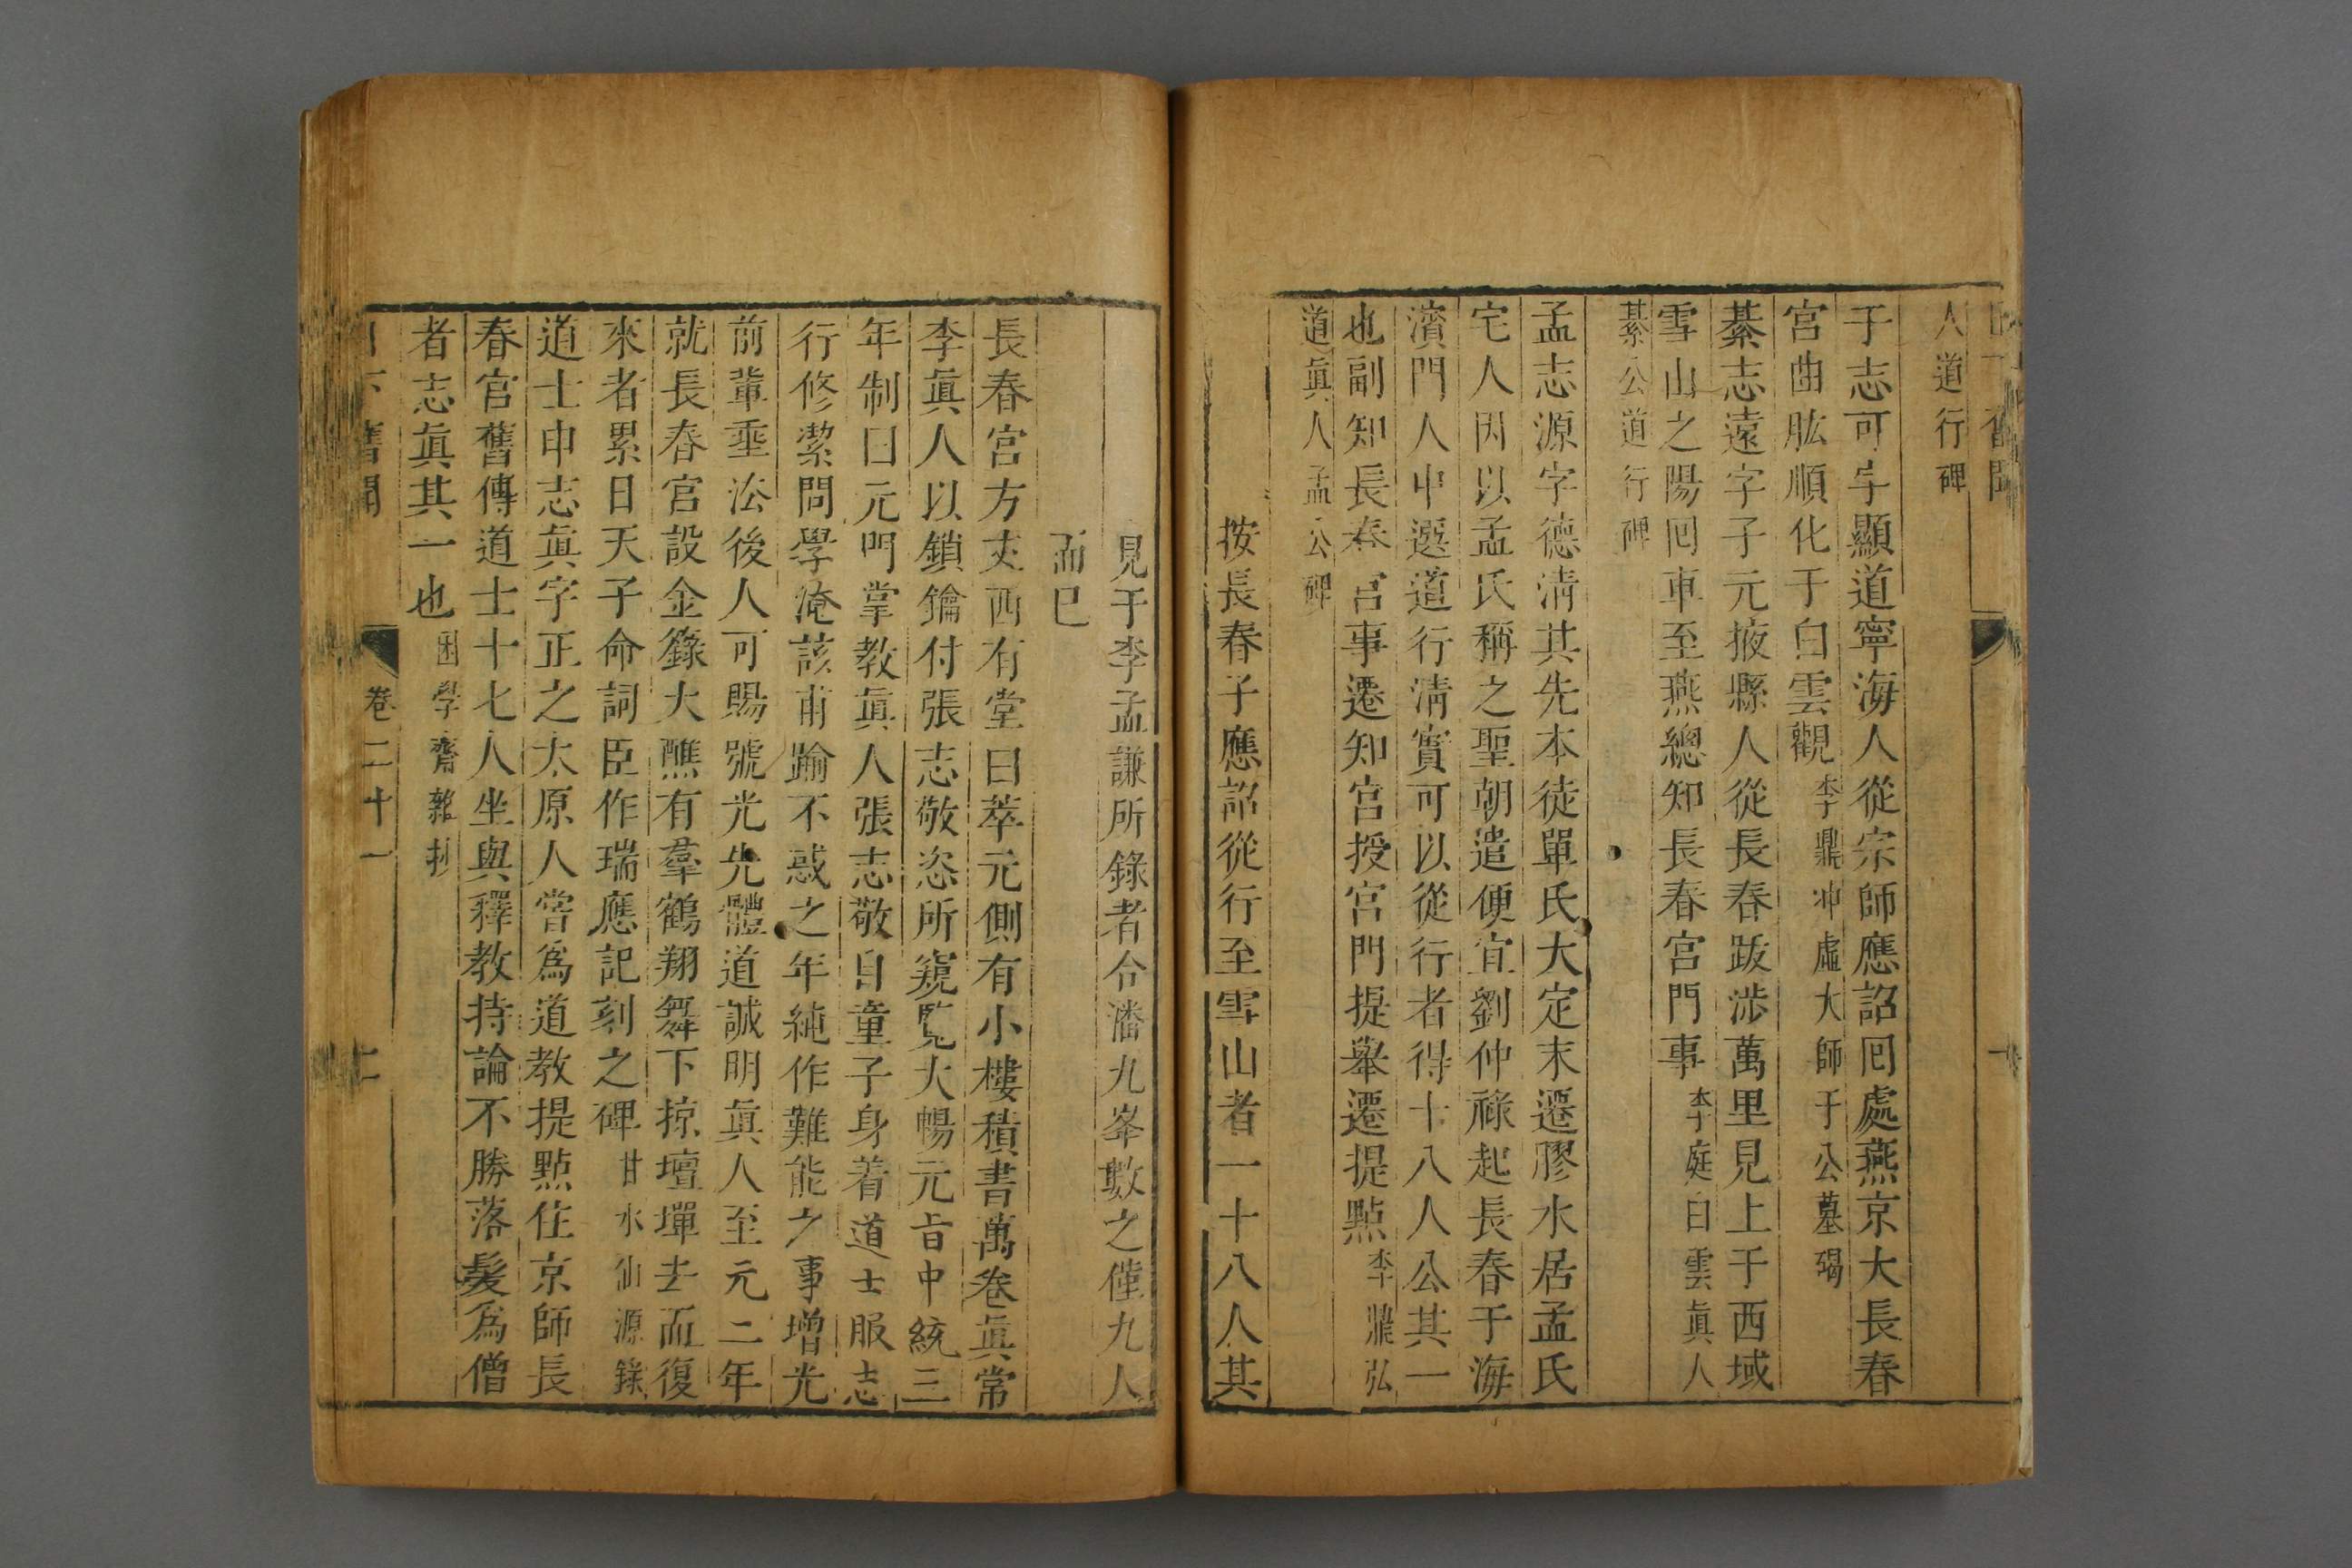 人道行碑
于志可字顯道寧海人從宗師應詔回處燕京大長春
宮曲肱順化于白雲觀李鼎冲虛大師于公墓碣
綦志遠字子元掖縣人從長春跋涉萬里見上于西域
雪山之陽回車至燕總知長春宮門事李庭白雲眞人
綦公道行碑
孟志源字德清其先本徒單氏大定末遷膠水居孟氏
宅人因以孟氏稱之聖朝遣便宜劉仲祿起長春于海
濱門人中選道行清實可以從行者得十八人公其一
也副知長春宮事遷知宮授宮門提舉遷提點李鼎弘
道眞人孟公碑
按長春子應詔從行至雪山者一十八人其
見于李孟謙所錄者合潘九峯數之僅九人
而已
長春宮方丈西有堂曰萃元側有小樓積書萬卷眞常
李眞人以鎖鑰付張志敬恣所窺覧大暢元旨中統三
年制曰元門掌教眞人張志敬自童子身着道士服志
行修潔問學淹該甫踰不惑之年純作難能之事增光
前輩垂法後人可賜號光先體道誠明眞人至元二年
就長春宮設金籙大醮有羣鶴翔舞下掠壇墠去而復
來者累日天子命詞臣作瑞應記刻之碑甘水仙源錄
道士申志眞字正之太原人嘗爲道教提點住京師長
春宮舊傳道士十七人坐與釋教持論不勝落髮爲僧
者志眞其一也困學齋雜抄
日下舊聞 卷二十一